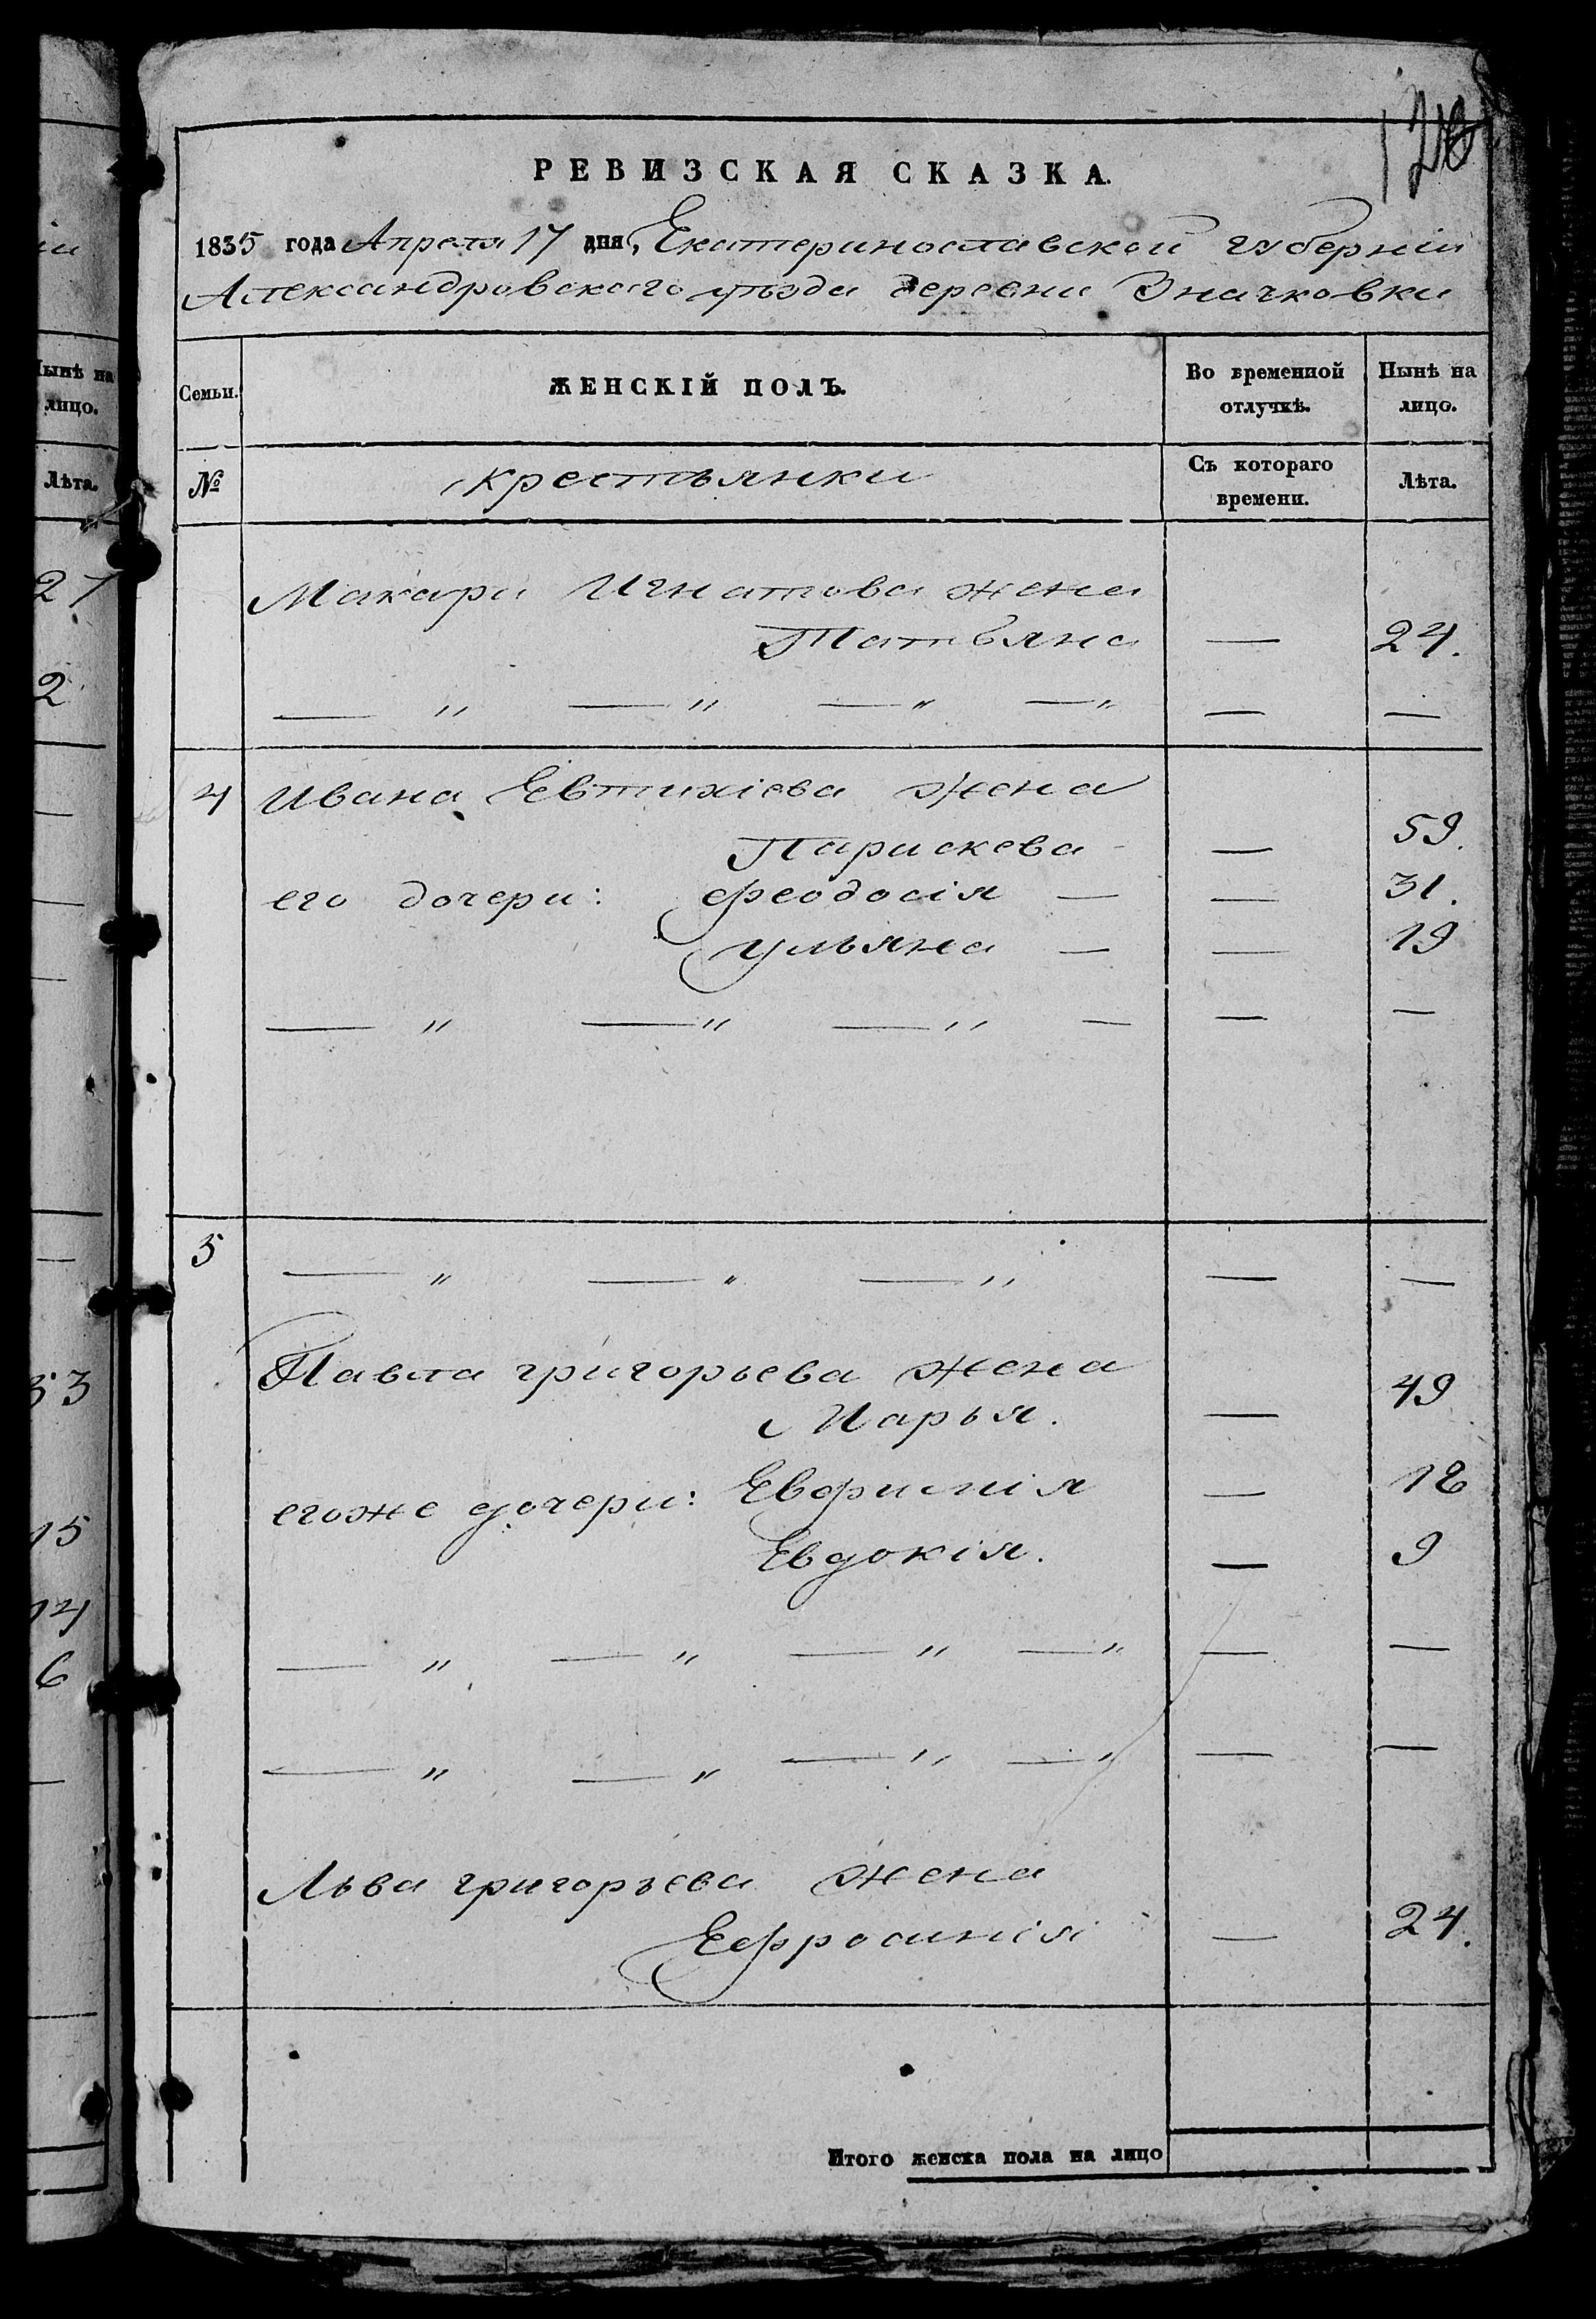 120
РЕВИЗСКАЯ СКАЗКА.
1835 года Апреля 17 дня, Екатеринославской губерніи
Александровского уѣзда деревни Значковки
Семьи.
ЖЕНСКІЙ ПОЛЪ.
Во временной отлучкѣ.
Нынѣ на лицо.
№
крестьянки
Съ котораго времени.
Лѣта.
Макара Игнатова жена
Татьяна — 24.
— " — " — " — " — —
4 Ивана Евтихіева жена
Параскева — 59.
его дочери: Феодосія — — 31.
Ульяна — — 19
— " — " — " — — —
5 — " — " — " — —
Павла григорьева жена
Марья. — 49
егоже дочери: Евфимія — 12
Евдокія. — 9
— " — " — " — " — —
— " — " — " — " — —
Льва григорьева жена
Ефросинія — 24.
Итого женска пола на лицо
Нынѣ на
лицо.
Лѣта.
27
2
53
15
14
6